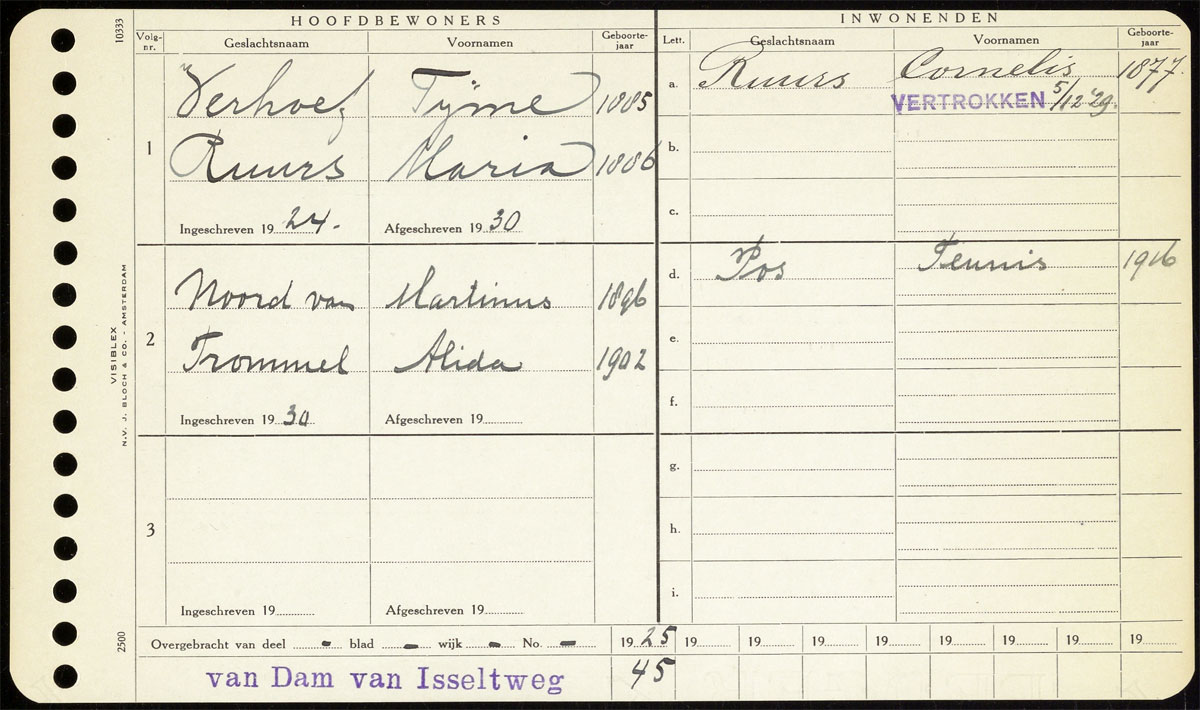 HOOFDBEWONERS
INWONENDEN
Volg-nr.
Geslachtsnaam
Voornamen
Geboorte-jaar
Lett.
Geslachtsnaam
Voornamen
Geboorte-jaar
1
Verhoef Tijme 1885
Ruurs Maria 1886
Ingeschreven 19 24. Afgeschreven 19 30
a. Ruurs Cornelis 1877.
VERTROKKEN 5/12 '29.
b.
c.
2
Noord van Martinus 1896
Trommel Alida 1902
Ingeschreven 19 30 Afgeschreven 19
d. Pos Teunis 1916
e.
f.
3
Ingeschreven 19 Afgeschreven 19
g.
h.
i.
Overgebracht van deel - blad - wijk - No. - 19 25 19 19 19 19 19 19 19 19
van Dam van Isseltweg 45
10333
VISIBLEX
N.V. J. BLOCH & CO. - AMSTERDAM
2500